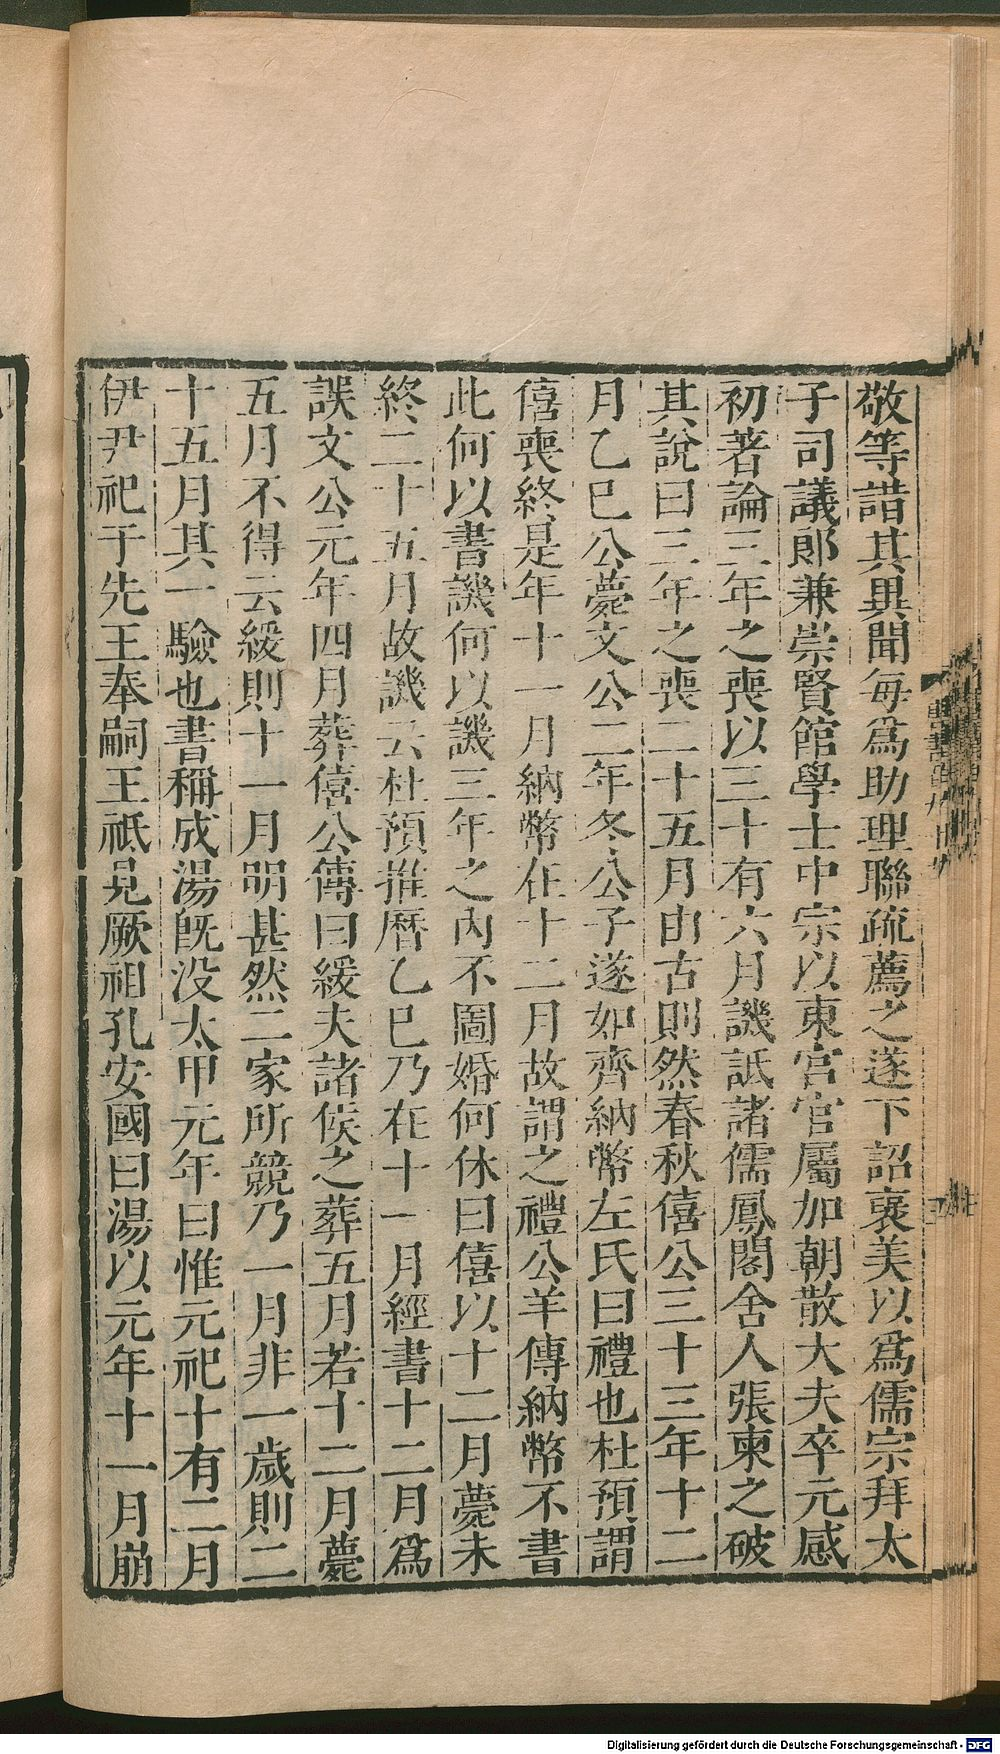 敬等諎其異聞每爲助理聯疏薦之遂下詔褒美以爲儒宗拜太
子司議郎兼崇賢館學士中宗以東宮官屬加朝散大夫卒元感
初著論三年之喪以三十有六月譏詆諸儒鳳閣舍人張柬之破
其說曰三年之喪二十五月由古則然春秋僖公三十三年十二
月乙巳公薨文公二年冬公子遂如齊納幣左氏曰禮也杜預謂
僖喪終是年十一月納幣在十二月故謂之禮公羊傳納幣不書
此何以書譏何以譏三年之內不圖婚何休曰僖以十二月薨未
終二十五月故譏云杜預推曆乙巳乃在十一月經書十二月爲
誤文公元年四月葬僖公傳曰緩夫諸侯之葬五月若十二月薨
五月不得云緩則十一月明甚然二家所競乃一月非一歲則二
十五月其一驗也書稱成湯旣没太甲元年曰惟元祀十有二月
伊尹祀于先王奉嗣王祇見厥祖孔安國曰湯以元年十一月崩
Digitalisierung gefördert durch die Deutsche Forschungsgemeinschaft - DFG